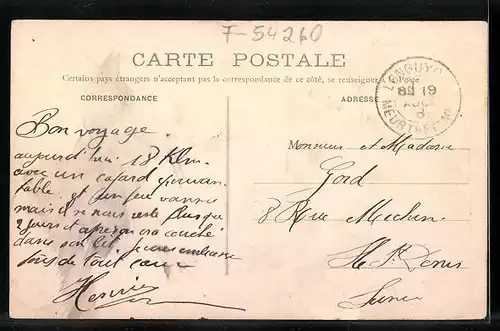 F-54260
CARTE POSTALE
Certains pays étrangers n'acceptant pas la correspondance de ce côté, se renseigner à la Poste
CORRESPONDANCE
ADRESSE
LONGUYON
19
MEURTHE-ET-M
Bon voyage
aujourd'hui 18 Klm
avec un cafard épouvan
table et un peu vannés
mais il ne nous reste plus que
2 jours et après on va couché
dans son lit je vous embrasse
tous de tout cœur
Monsieur et Madame
Gord
8 Rue Mechin
Ile St Denis
Seine